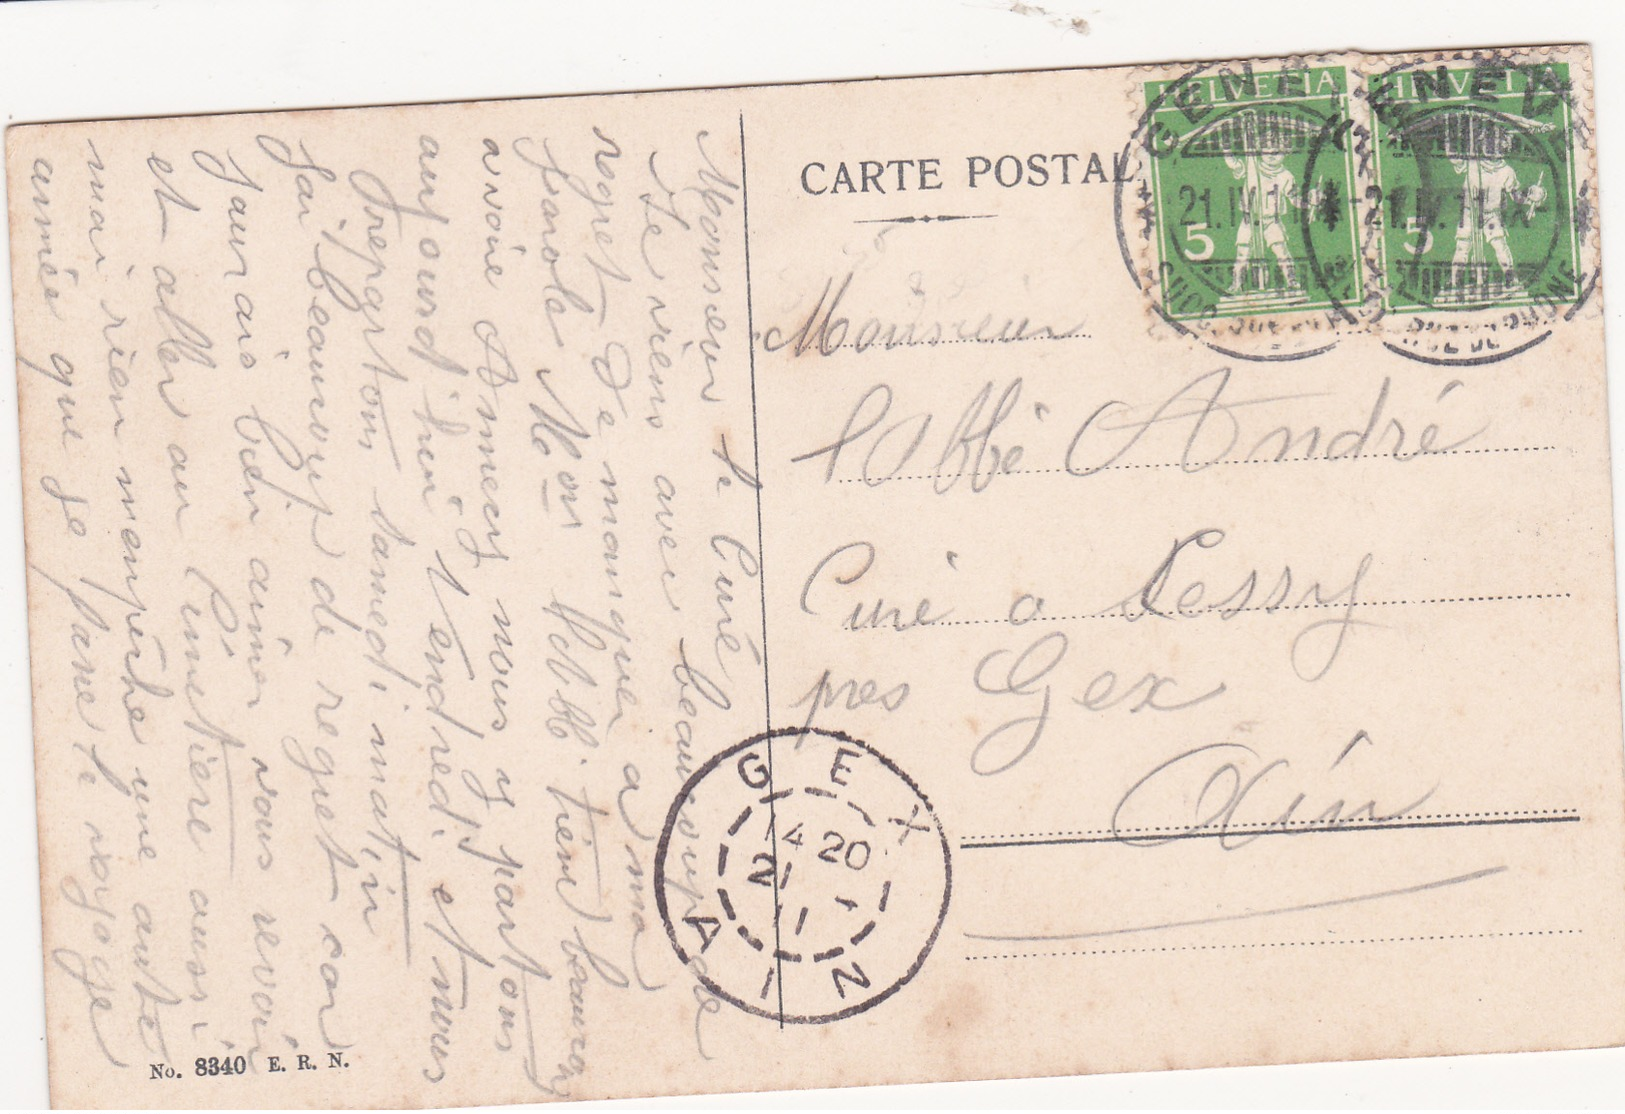 CARTE POSTAL
HELVETIA
5
HELVETIA
5
GENÈVE
21.IV.11
GENÈVE
21.IV.11.IX-
Monsieur
l'Abbé André
Curé a Cessy
pres Gex
Ain
GEX
4 20
2 1
AIN
Monsieur le Curé
Je viens avec beaucoup de
regret de manquer a ma
parole Mon
avoir Annecy nous y partons
aujourd'hui Vendredi et nous
repartons samedi matin
J'ai beaucoup de regret car
j'aurais bien aimer vous revoir
et aller au Cimetière aussi
mai rien m'empêche une autre
année que je fasse le voyage
No. 8340 E. R. N.